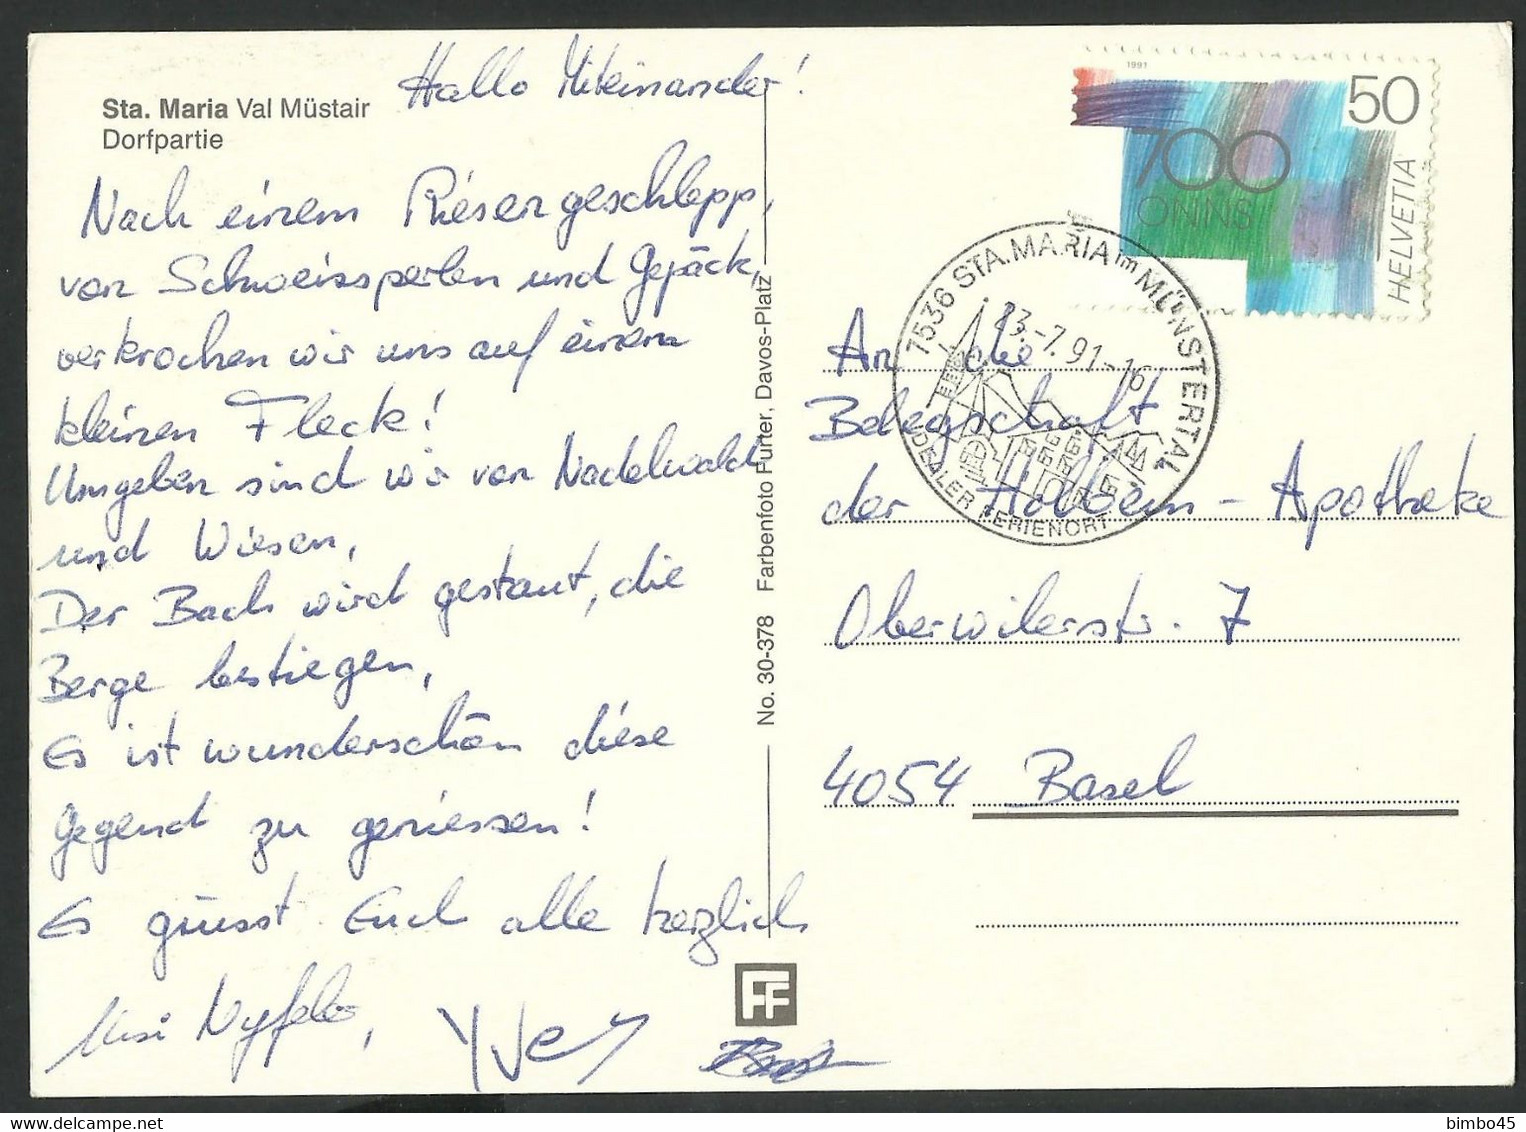 Sta. Maria Val Müstair
Dorfpartie
Hallo Miteinander!
Nach einem Riesengeschlepp,
von Schweissperlen und Gepäck,
verkrochen wir uns auf einen
kleinen Fleck!
Umgeben sind wir von Nadelwald
und Wiesen,
Der Bach wird gestaut, die
Berge bestiegen,
Es ist wunderschön diese
Gegend zu geniessen!
Es grüsst Euch alle herzlich
Yves
No. 30-378 Farbenfoto Furter, Davos-Platz
FF
1991
50
700
ONNS
HELVETIA
7536 STA. MARIA im MÜNSTERTAL
23.-7.91-16
IDEALER FERIENORT
An die
Belegschaft
der Holbein-Apotheke
Oberwilerstr. 7
4054 Basel
delcampe.net
bimbo45